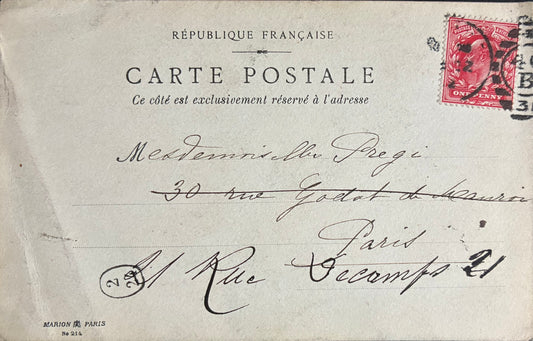 RÉPUBLIQUE FRANÇAISE
CARTE POSTALE
Ce côté est exclusivement réservé à l'adresse
ONE PENNY
B
31
Mesdemoiselles Pregi
30 rue Godot de Mauroi
Paris
21 Rue Decamps 21
2
24
MARION PARIS
No 214